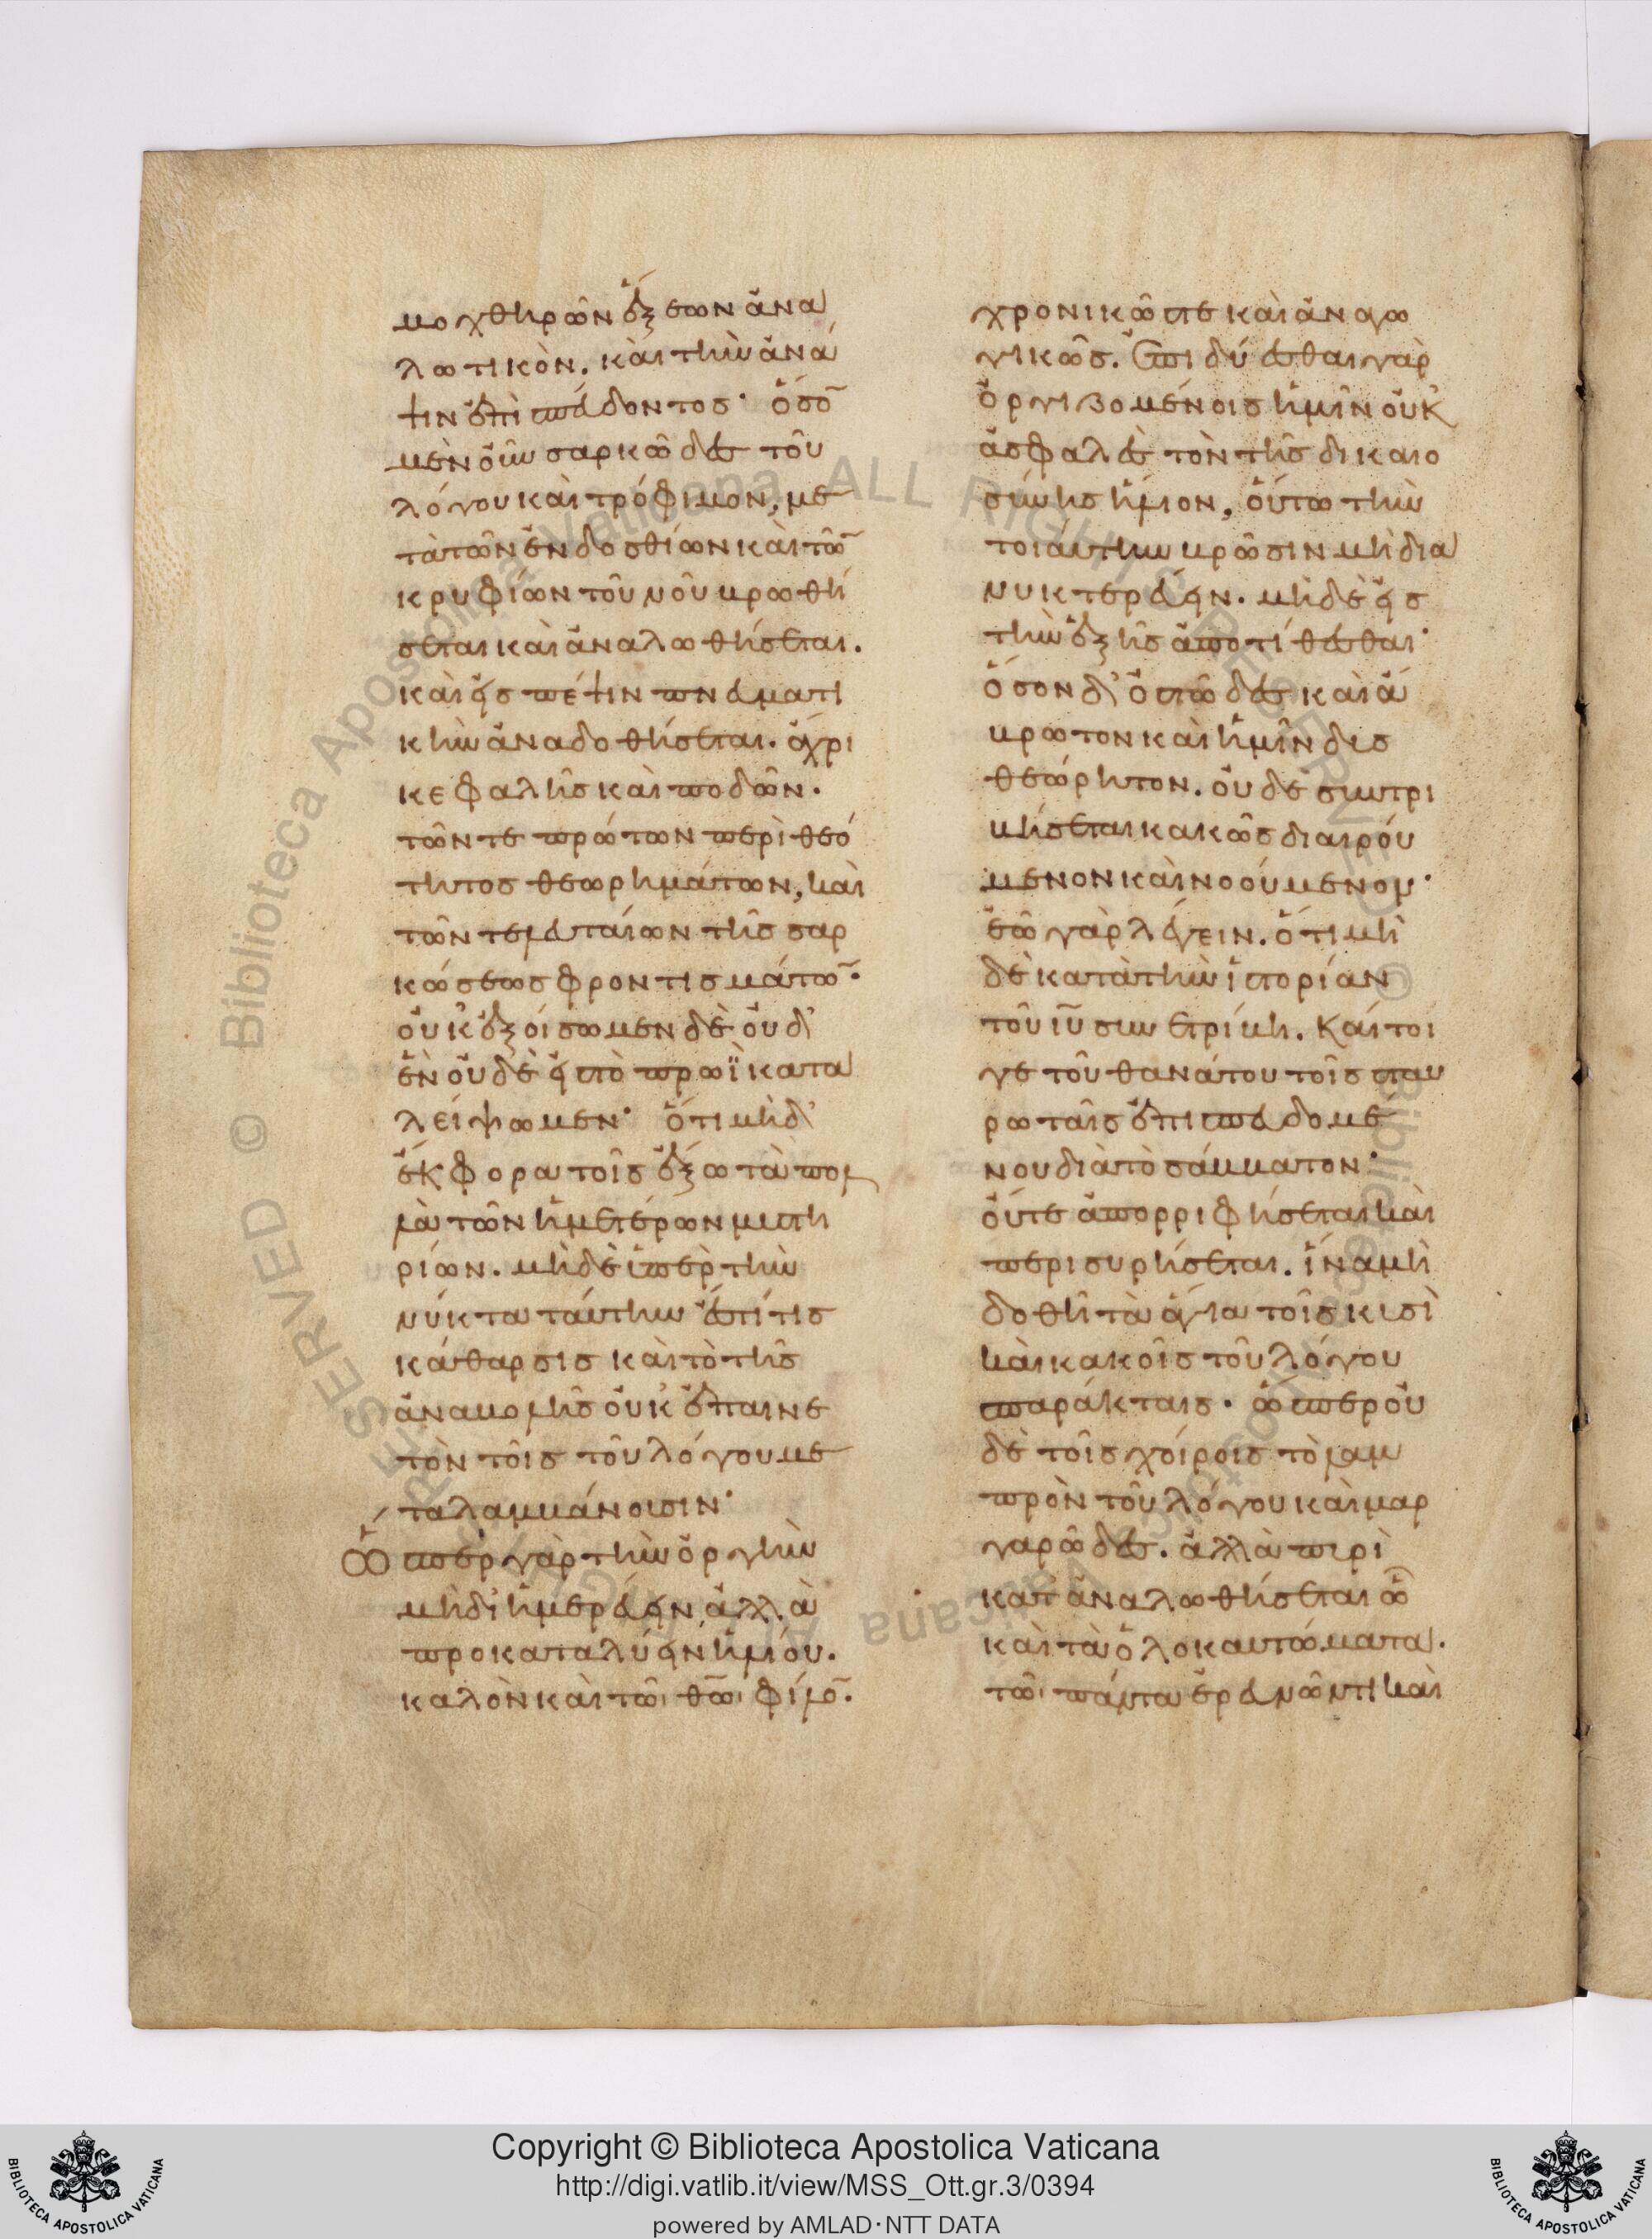 μοχθηρῶν ἕξεων ἀνα
λωτικὸν. καὶ τὴν ἀνά
ψιν ἐπισπεύδοντος· ὅσο̄
μὲν οὖν σαρκῶδες τοῦ
λόγου καὶ τρόφιμον, με
τὰ τῶν ἐνδοσθίων καὶ τῶ̄
κρυφίων τοῦ νοῦ βρωθή
σεται καὶ ἀναλωθήσεται.
καὶ εἰς πέψιν πνευματι
κὴν ἀναδοθήσεται. ἄχρι
κεφαλῆς καὶ ποδῶν.
τῶν τε πρώτων περὶ θεό
τητος θεωρημάτων, καὶ
τῶν τελευταίων τῆς σαρ
κώσεως φροντισμάτω̄·
οὐκ ἐξοίσωμεν δὲ οὐδ
ὲν οὐδὲ εἰς τὸ πρωῒ κατα
λείψωμεν· ὅτι μὴδ'
ἔκφορα τοῖς ἔξω τὰ πολ
λὰ τῶν ἡμετέρων μυστη
ρίων. μηδὲ ὑπὲρ τὴν
νύκτα ταύτην ἐστί τις
κάθαρσις καὶ τὸ τῆς
ἀναβολῆς οὐκ ἐπαινε
τὸν τοῖς τοῦ λόγου με
ταλαμβάνουσιν·
Ὥσπερ γὰρ τὴν ὀργὴν
μὴ διημερεύειν, ἀλλὰ
προκαταλύειν ἡλίου.
καλὸν καὶ τῶι θω̄ι φίλο̄.
χρονικῶς τε καὶ ἀναγω
γικῶς. ἐπιδύεσθαι γὰρ
ὀργιζομένοις ἡμῖν οὐκ
ἀσφαλὲς τὸν τῆς δικαιο
σύνης ἥλιον, οὕτω τὴν
τοιαύτην βρῶσιν μὴ δια
νυκτερεύειν. μηδὲ εἰς
τὴν ἑξῆς ἀποτίθεσθαι·
ὅσον δ' ὀστῶδες καὶ ἄ
βρωτον καὶ ἡμῖν δυσ
θεώρητον. οὐδὲ συντρι
βήσεται κακῶς διαιρού
μενον καὶ νοούμενον·
ἐῶ γὰρ λέγειν. ὅτι μη
δὲ κατὰ τὴν ἱστορίαν
τοῦ ιῡ συνετρίβη. καίτοι
γε τοῦ θανάτου τοῖς σταυ
ρωταῖς ἐπισπευδομέ
νου διὰ τὸ σάββατον·
οὔτε ἀπορριφήσεται καὶ
περισυρήσεται. ἵνα μὴ
δοθῆ τὰ ἅγια τοῖς κυσὶ
καὶ κακοῖς τοῦ λόγου
σπαράκταις· ὥσπερ οὐ
δὲ τοῖς χοίροις τὸ λαμ
πρὸν τοῦ λόγου καὶ μαρ
γαρῶδες. ἀλλὰ πυρὶ
καταναλωθήσεται ὧ
καὶ τὰ ὁλοκαυτώματα.
τῶι πάντα ἐρευνῶντι καὶ
Copyright © Biblioteca Apostolica Vaticana
http://digi.vatlib.it/view/MSS_Ott.gr.3/0394
powered by AMLAD·NTT DATA